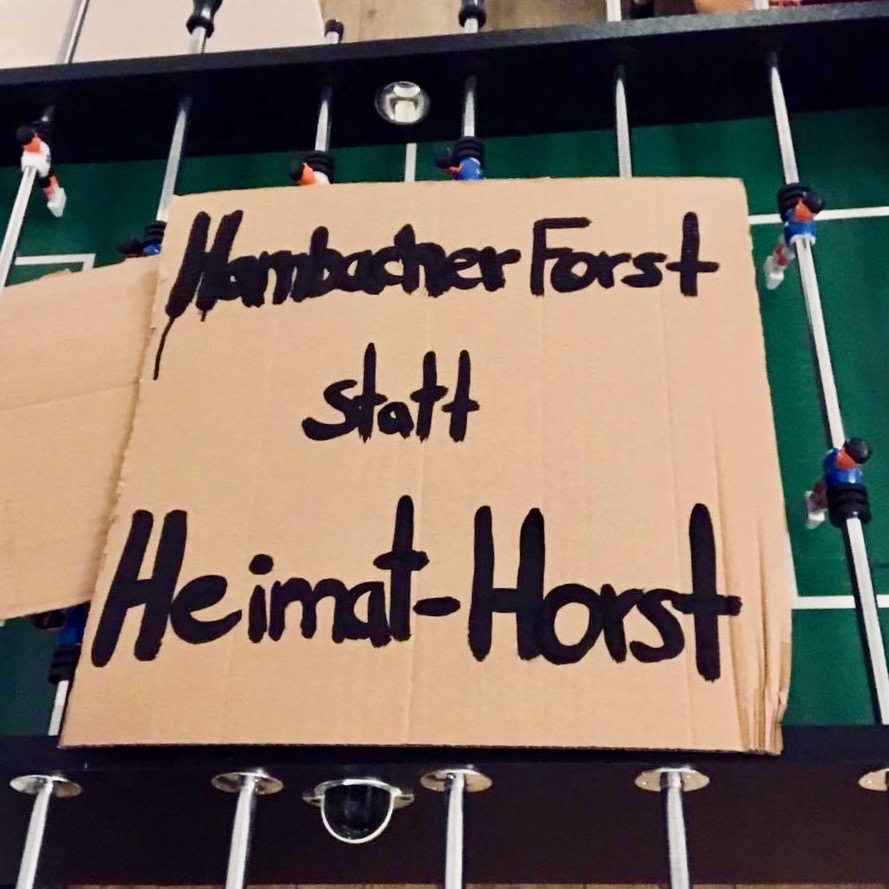 Hambacher Forst
statt
Heimat-Horst